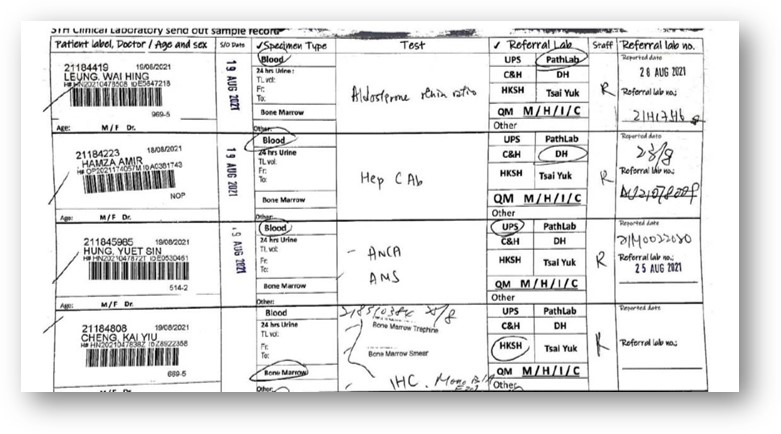 STH Clinical Laboratory send out sample record
Patient label, Doctor / Age and sex S/O Date ✓Specimen Type Test ✓ Referral Lab Staff Referral lab no.
21184419 19/08/2021
LEUNG, WAI HING
969-5
Age: M/F Dr.
19 AUG 2021
Blood
24 hrs Urine:
TL vol:
Fr:
To:
Bone Marrow
Other:
Aldosterone renin ratio
UPS PathLab
C&H DH
HKSH Tsai Yuk
QM M/H/I/C
Other
R
Reported date
26 AUG 2021
Referral lab no.:
21184223 18/08/2021
HAMZA AMIR
NOP
Age: M/F Dr.
19 AUG 2021
Blood
24 hrs Urine
TL vol:
Fr:
To:
Bone Marrow
Other:
Hep C Ab
UPS PathLab
C&H DH
HKSH Tsai Yuk
QM M/H/I/C
Other
R
Reported date
23/8
Referral lab no.:
211845985 19/08/2021
HUNG, YUET SIN
514-2
Age: M/F Dr.
19 AUG 2021
Blood
24 hrs Urine
TL vol:
Fr:
To:
Bone Marrow
Other:
- ANCA
AMS
UPS PathLab
C&H DH
HKSH Tsai Yuk
QM M/H/I/C
Other
R
Reported date
Referral lab no.:
25 AUG 2021
21184808 19/08/2021
CHENG, KAI YIU
689-5
Blood
24 hrs Urine
TL vol:
Fr:
To:
Bone Marrow
Other:
Bone Marrow Trephine
Bone Marrow Smear
IHC.
UPS PathLab
C&H DH
HKSH Tsai Yuk
QM M/H/I/C
Other
R
Reported date
Referral lab no.: